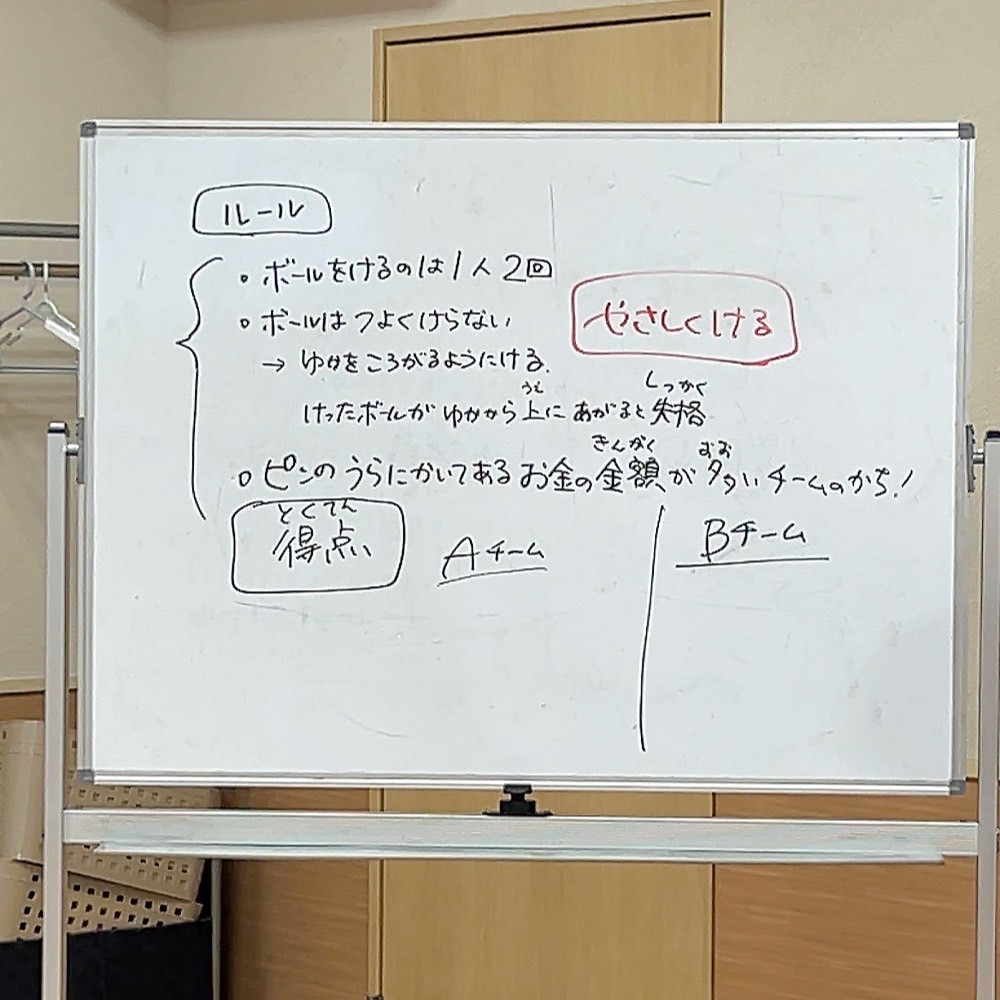 ルール
。ボールをけるのは1人2回
。ボールはつよくけらない
やさしくける
→ ゆかをころがるようにける。
けったボールがゆかから上にあがると失格
うえ
しっかく
。ピンのうらにかいてあるお金の金額が多いチームのかち!
きんがく
おお
とくてん
得点
Aチーム
Bチーム